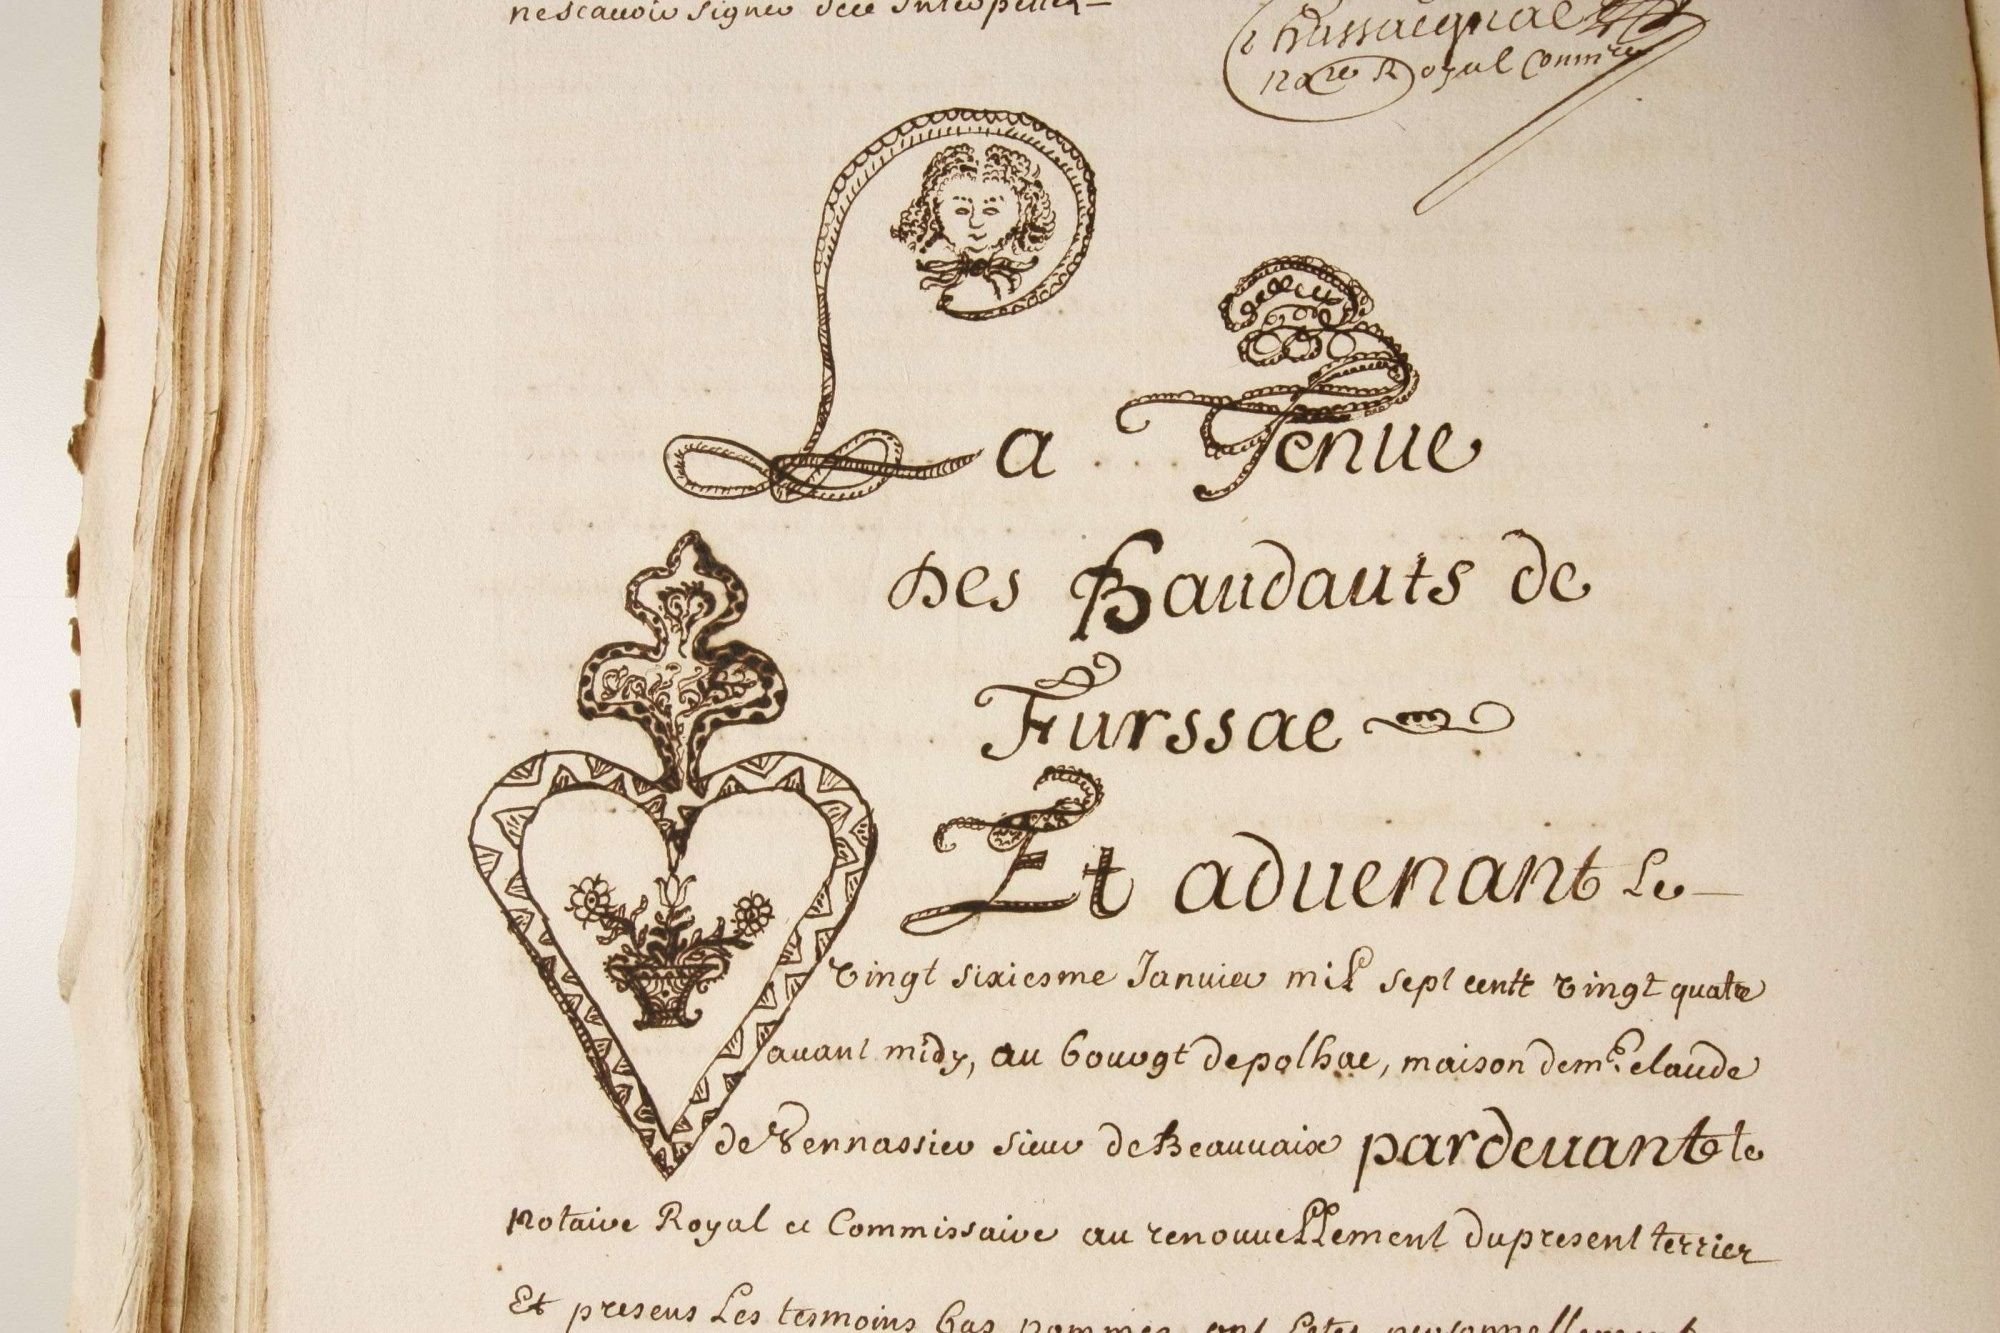 nescavoir signer de ce Interpellez –
Chassaignac
No.re Royal Comm.re
La Tenue
Des Baudauts de
Furssac
Et aduenant Le –
vingt sixiesme Januier mil sept cent vingt quatre
auant midy, au bourgt de polhac, maison de m.e claude
de Vennassier sieur de Beauuaix pardeuant le
Notaire Royal et Commissaire au renouuellement du present terrier
Et presens Les tesmoins bas nommes ont Estes personnellement